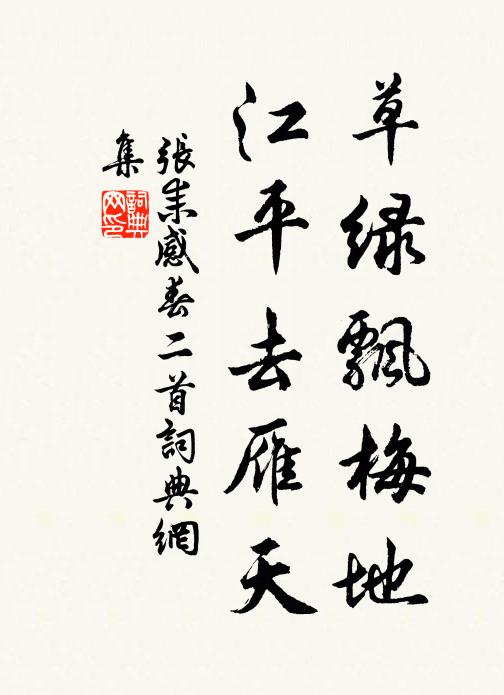 草綠飄梅地
江平去雁天
張耒感春二首詞典網
集
詞典
网印